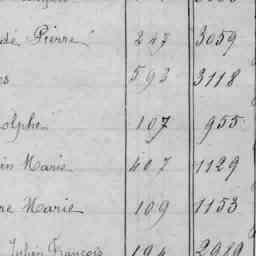 dé Pierre 247 3059
es 593 3118
olphe 107 955
in Marie 407 1129
re Marie 109 1153
Julien François 194 2989